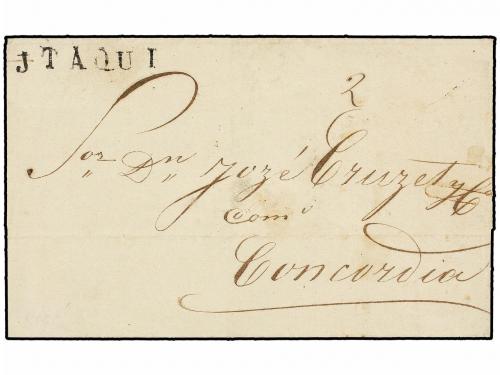 JTAQUI
2
Sor Dn Jozé Cruzet y Ca
Como
Concordia